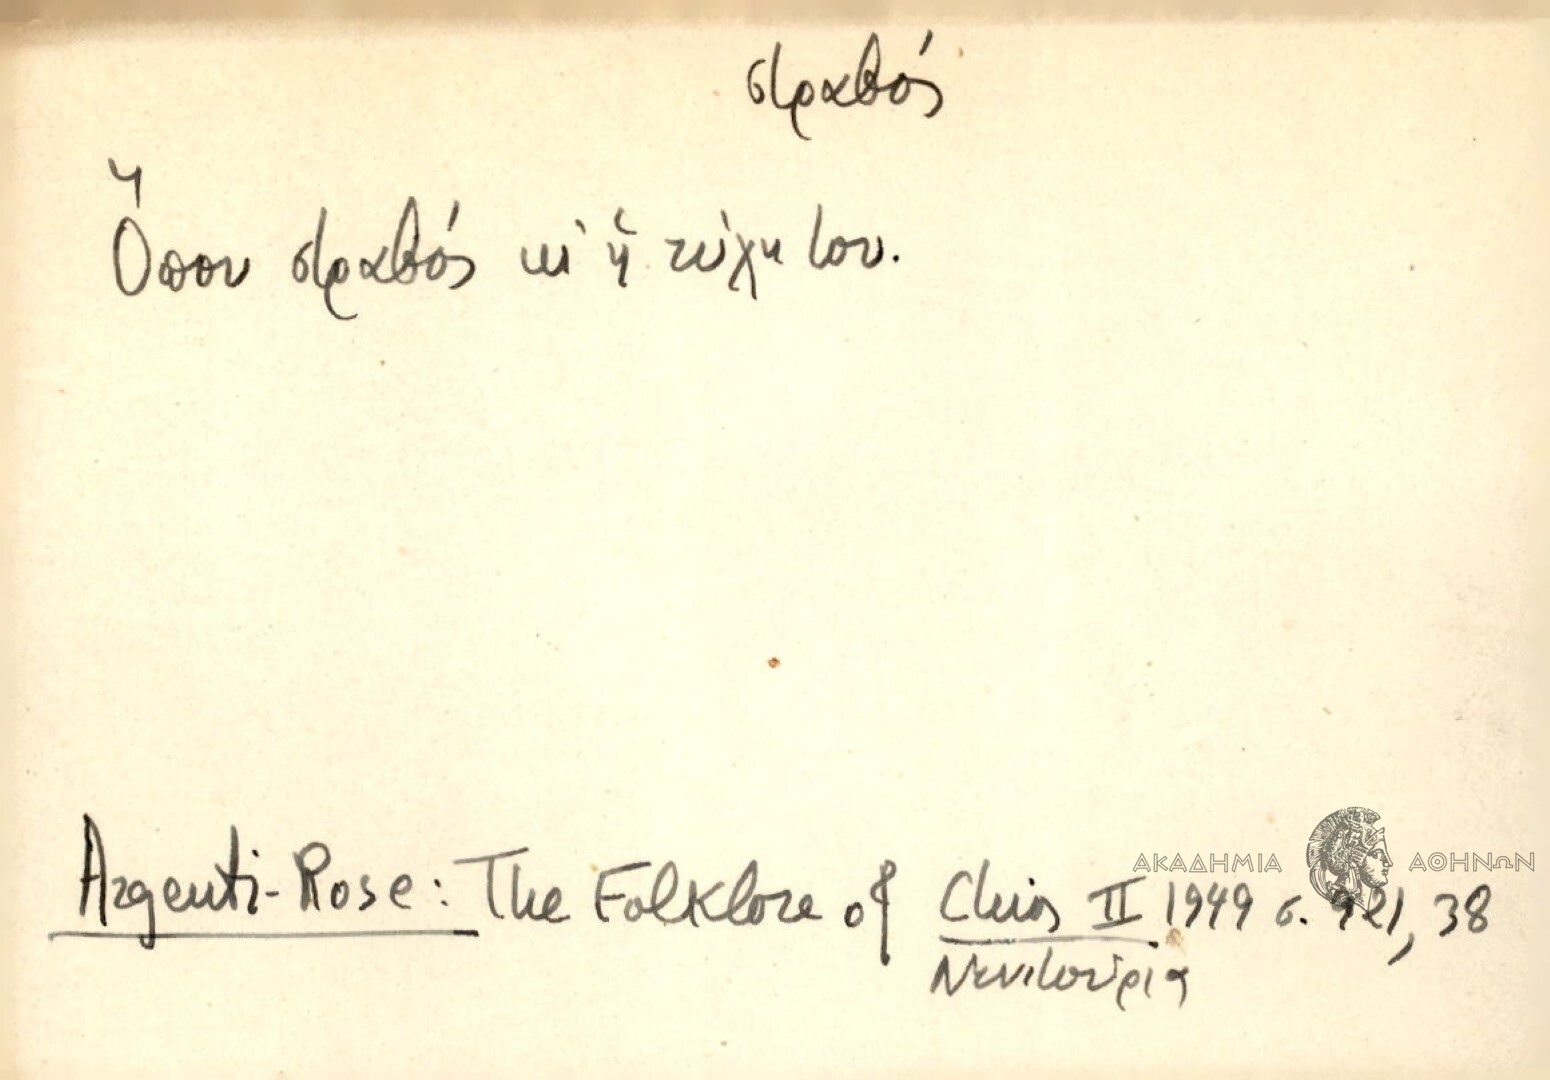 στραβός
Ὅπου στραβός κι ἡ τύχη του.
ΑΚΑΔΗΜΙΑ ΑΘΗΝΩΝ
Argenti-Rose: The Folklore of Chios II 1949 σ. 921, 38
Νενιτούρια